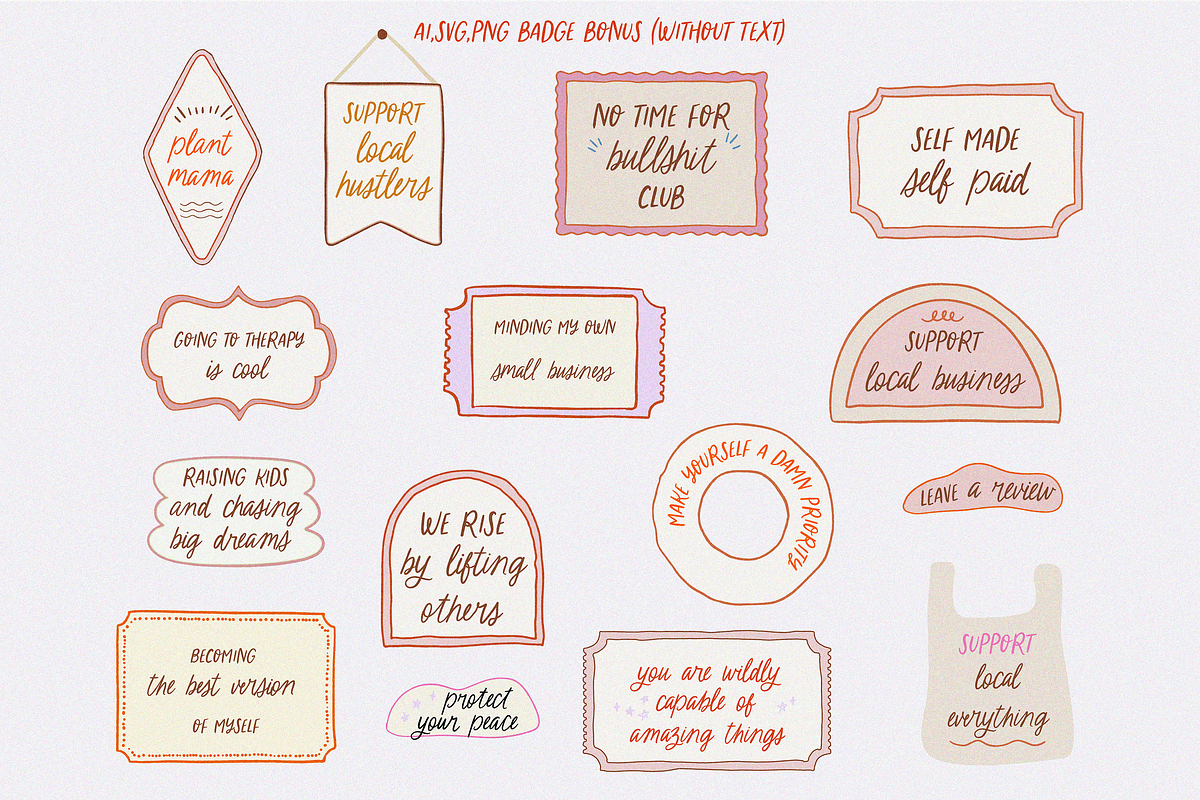 AI,SVG,PNG BADGE BONUS (WITHOUT TEXT)
plant
mama
SUPPORT
local
hustlers
NO TIME FOR
bullshit
CLUB
SELF MADE
self paid
GOING TO THERAPY
is cool
MINDING MY OWN
small business
SUPPORT
local business
RAISING KIDS
and chasing
big dreams
WE RISE
by lifting
others
MAKE YOURSELF A DAMN PRIORITY
LEAVE a review
BECOMING
the best version
OF MYSELF
protect
your peace
you are wildly
capable of
amazing things
SUPPORT
local
everything